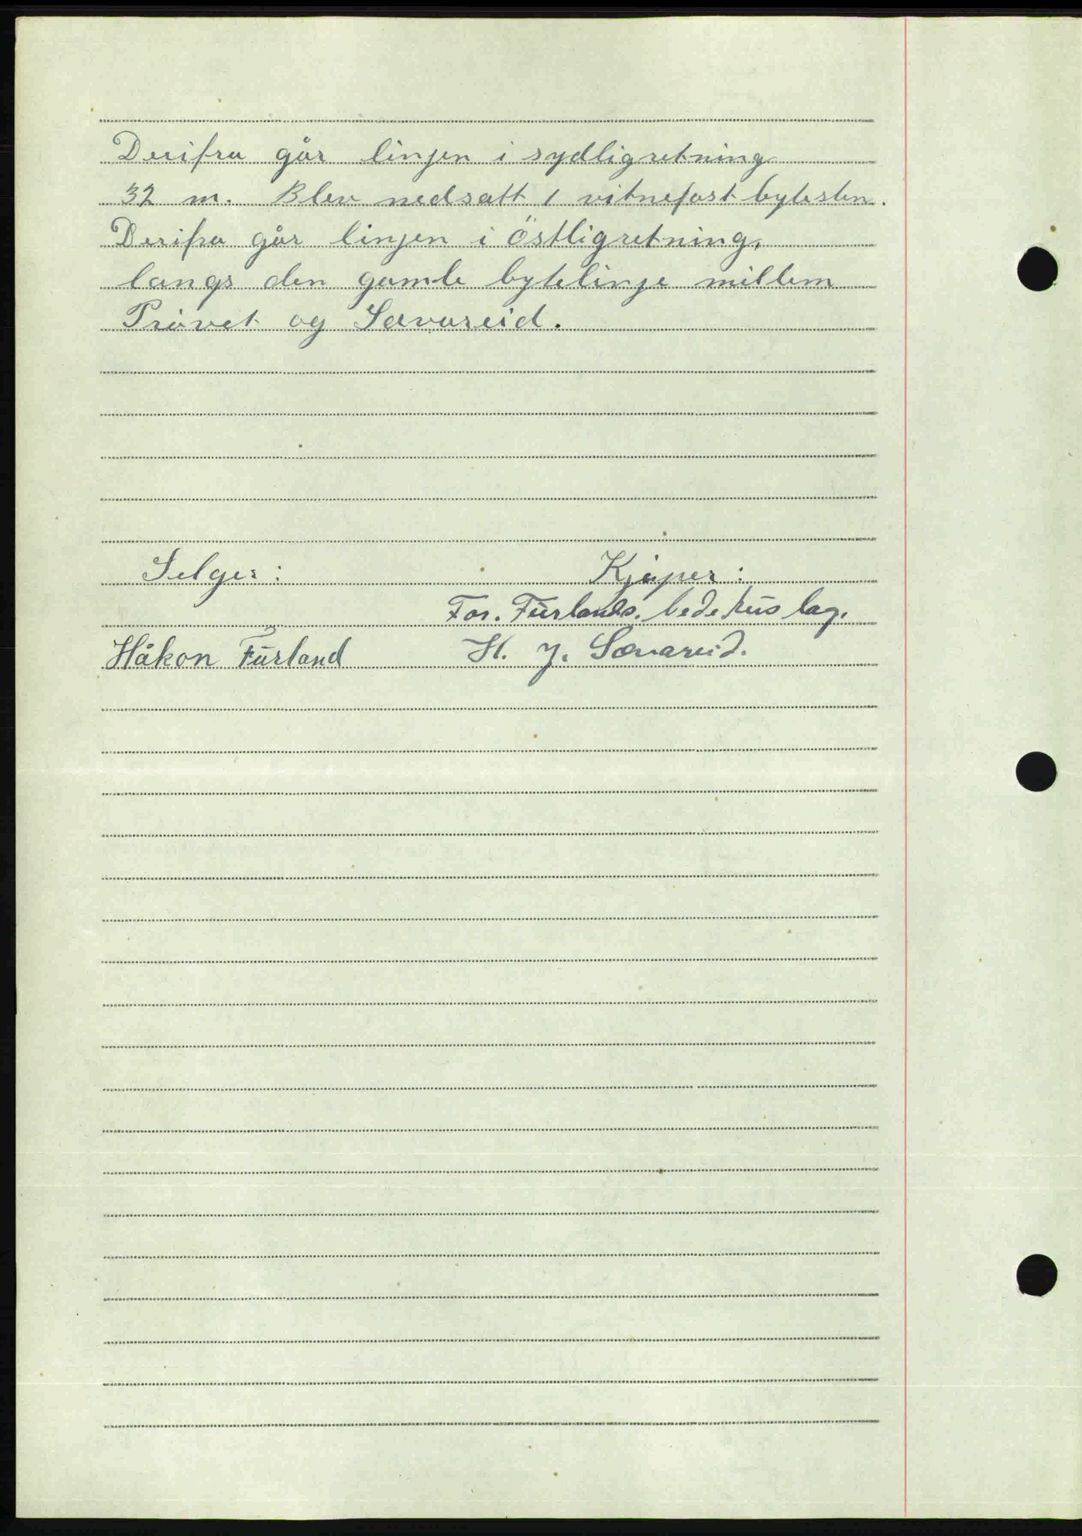 Derifra går linjen i sydligretning
32 m. Blev nedsatt 1 vitnefast bytesten.
Derifra går linjen i östligretning,
langs den gamle bytelinje millem
Prøvet og Sævareid.
Selger: Kjøper:
For. Furlands. bedehus lag.
Håkon Furland H. J. Sævareid.